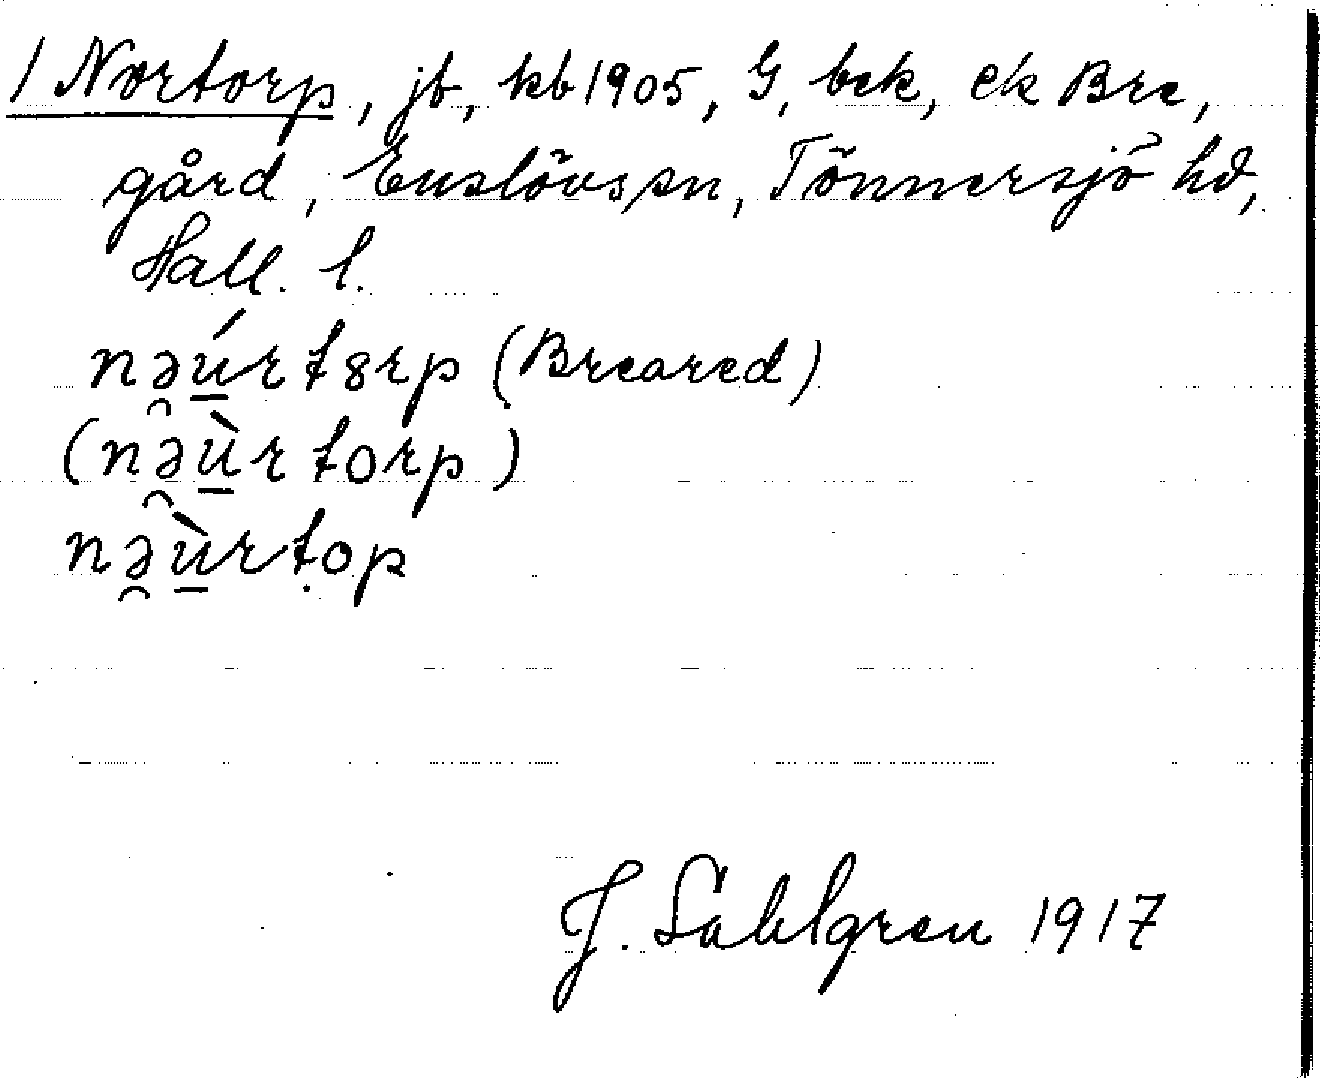 1 Nortorp, jb, kb 1905, G, bek, ek Bre,
gård, Enslövs sn, Tönnersjö hd,
Hall. l.
nə̯ú̱rt8rp (Breared)
(nə̯ù̱rtorp)
nə̯ù̱rṭop
J. Sahlgren 1917